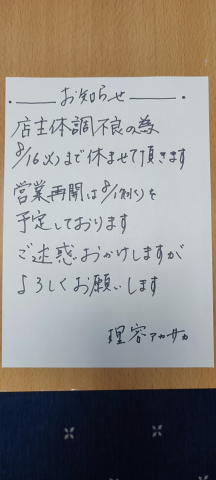 お知らせ
店主体調不良の為
8/16(火)まで休ませて頂きます
営業再開は8/17(水)を
予定しております
ご迷惑おかけしますが
よろしくお願いします
理容アカサカ